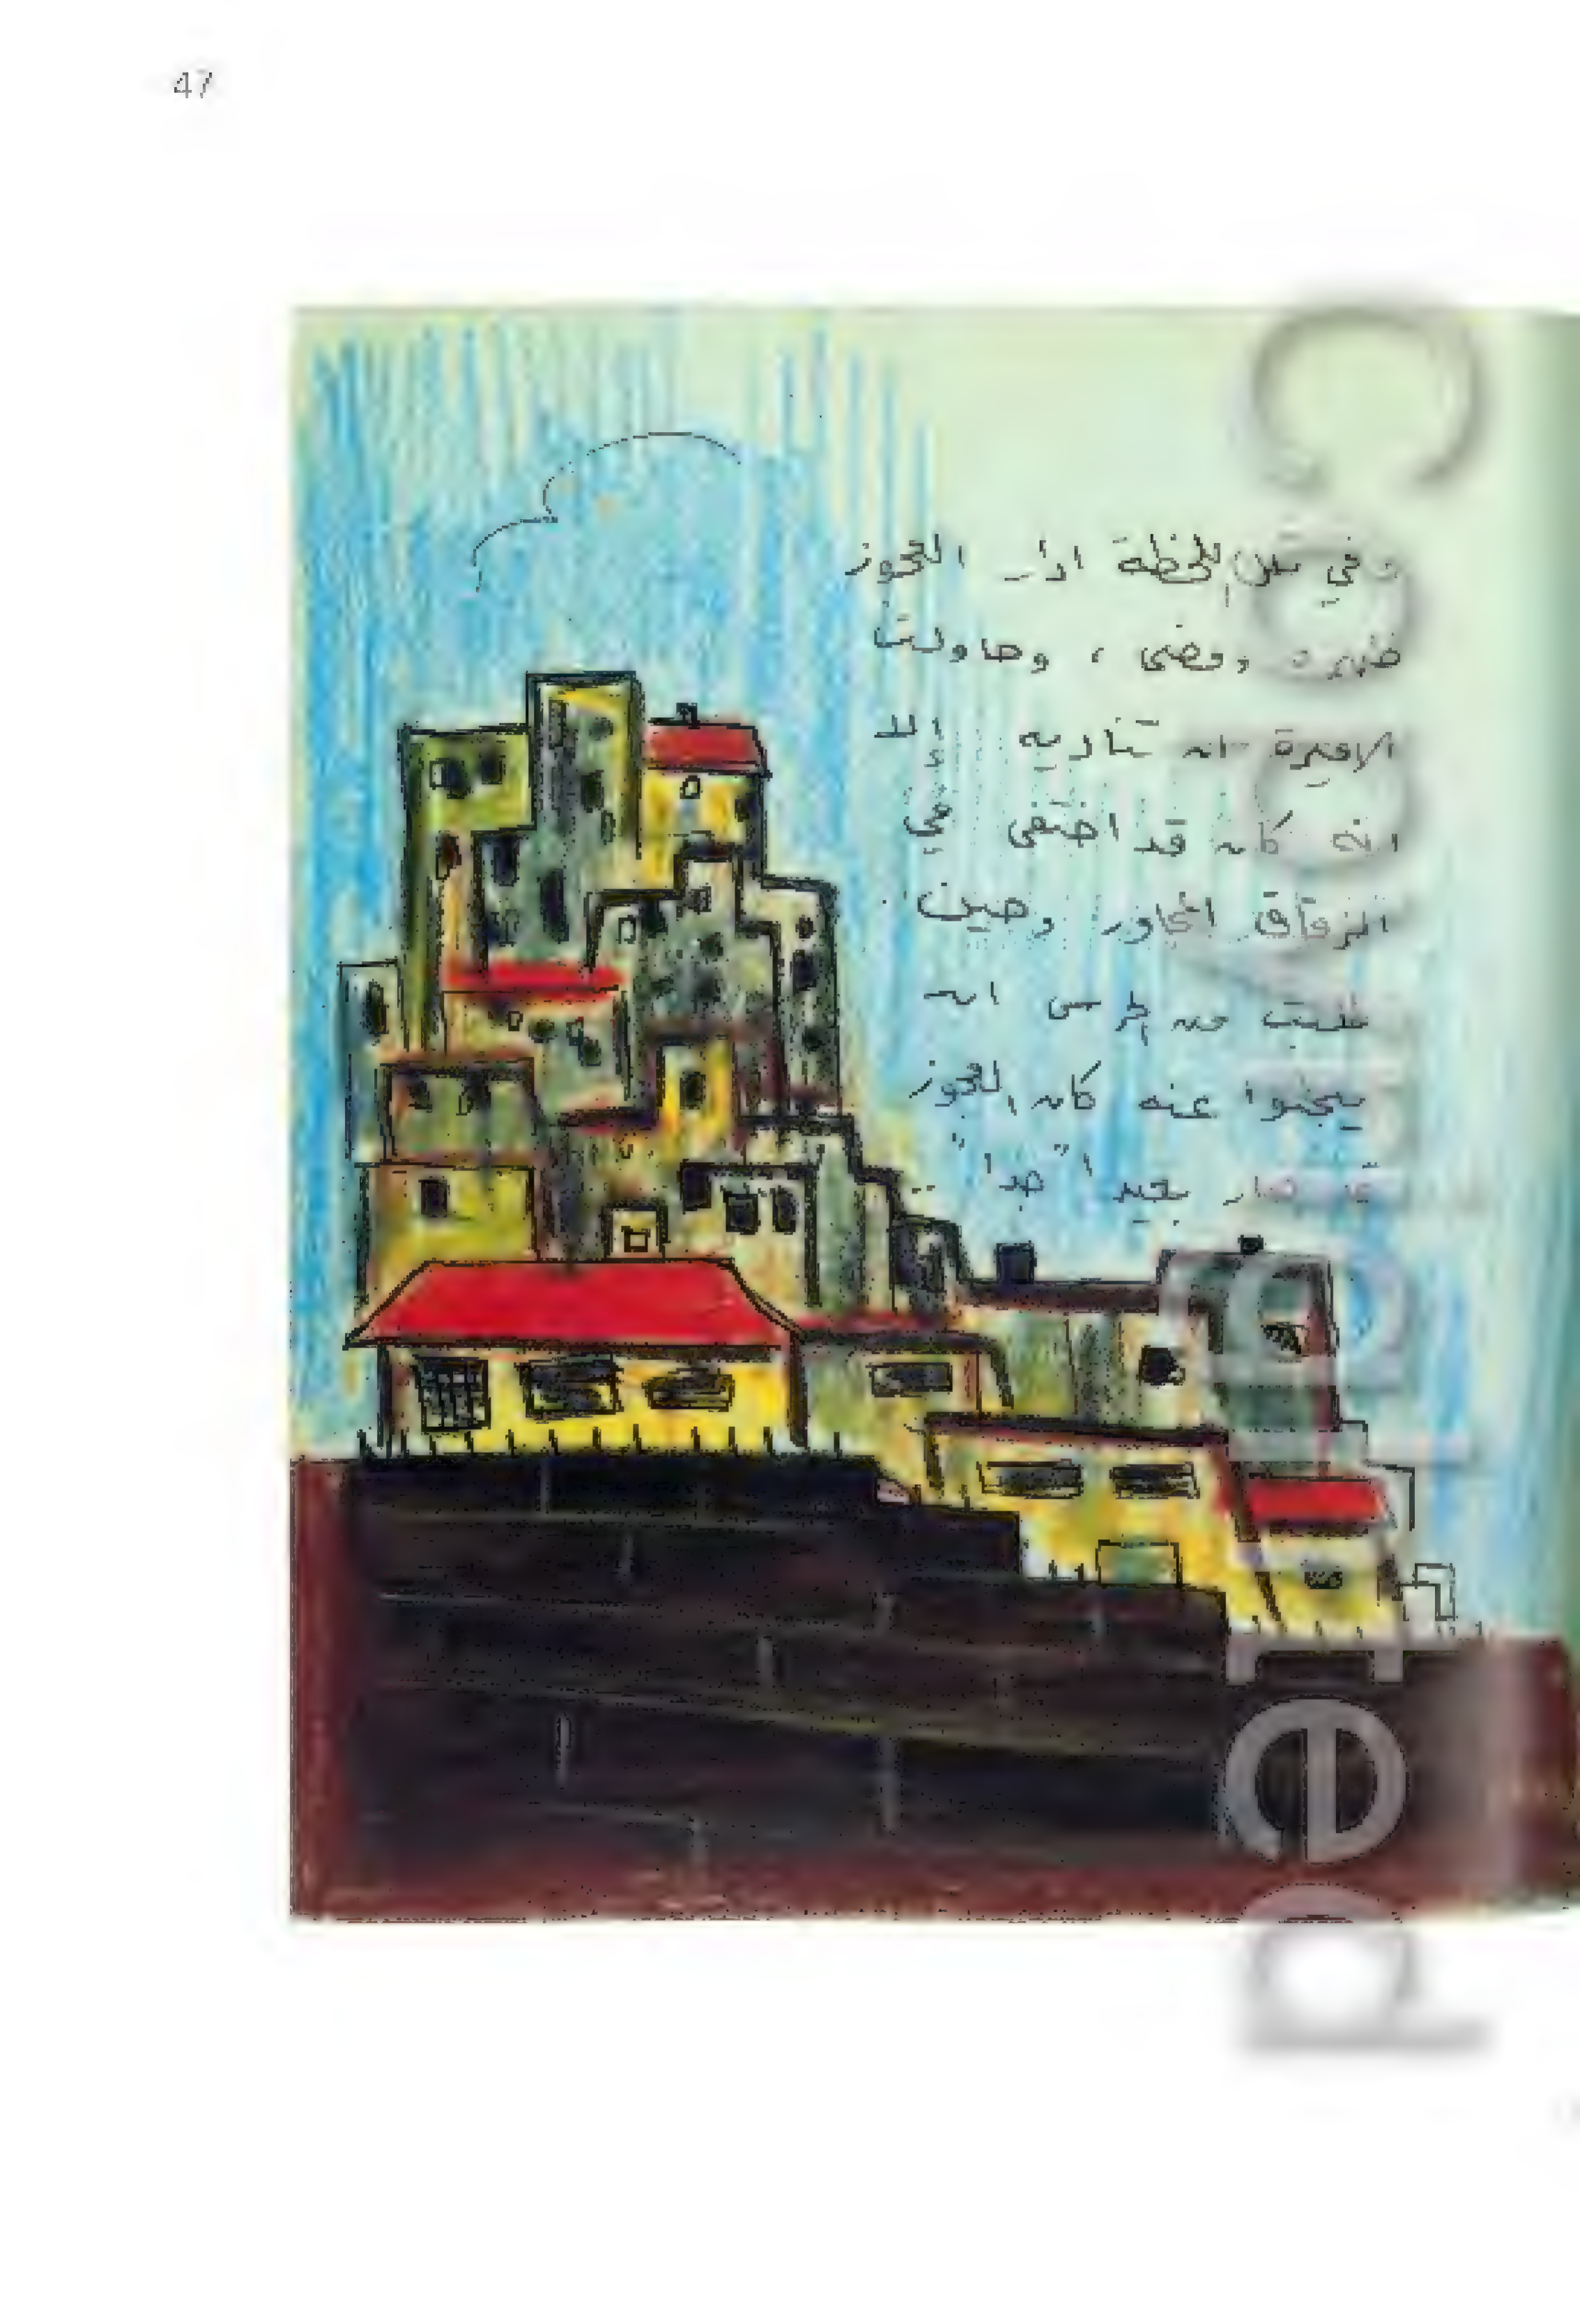 47
وفي تلك اللحظة ادار العجوز
ظهره ومضى ، وحاولت
الاميرة ان تناديه إلا
انه كان قد اختفى في
الزقاق المجاور وحين
طلبت من الحرس ان
يبحثوا عنه كان العجوز
قد صار بعيدا "جدا" ..
Copyrighted